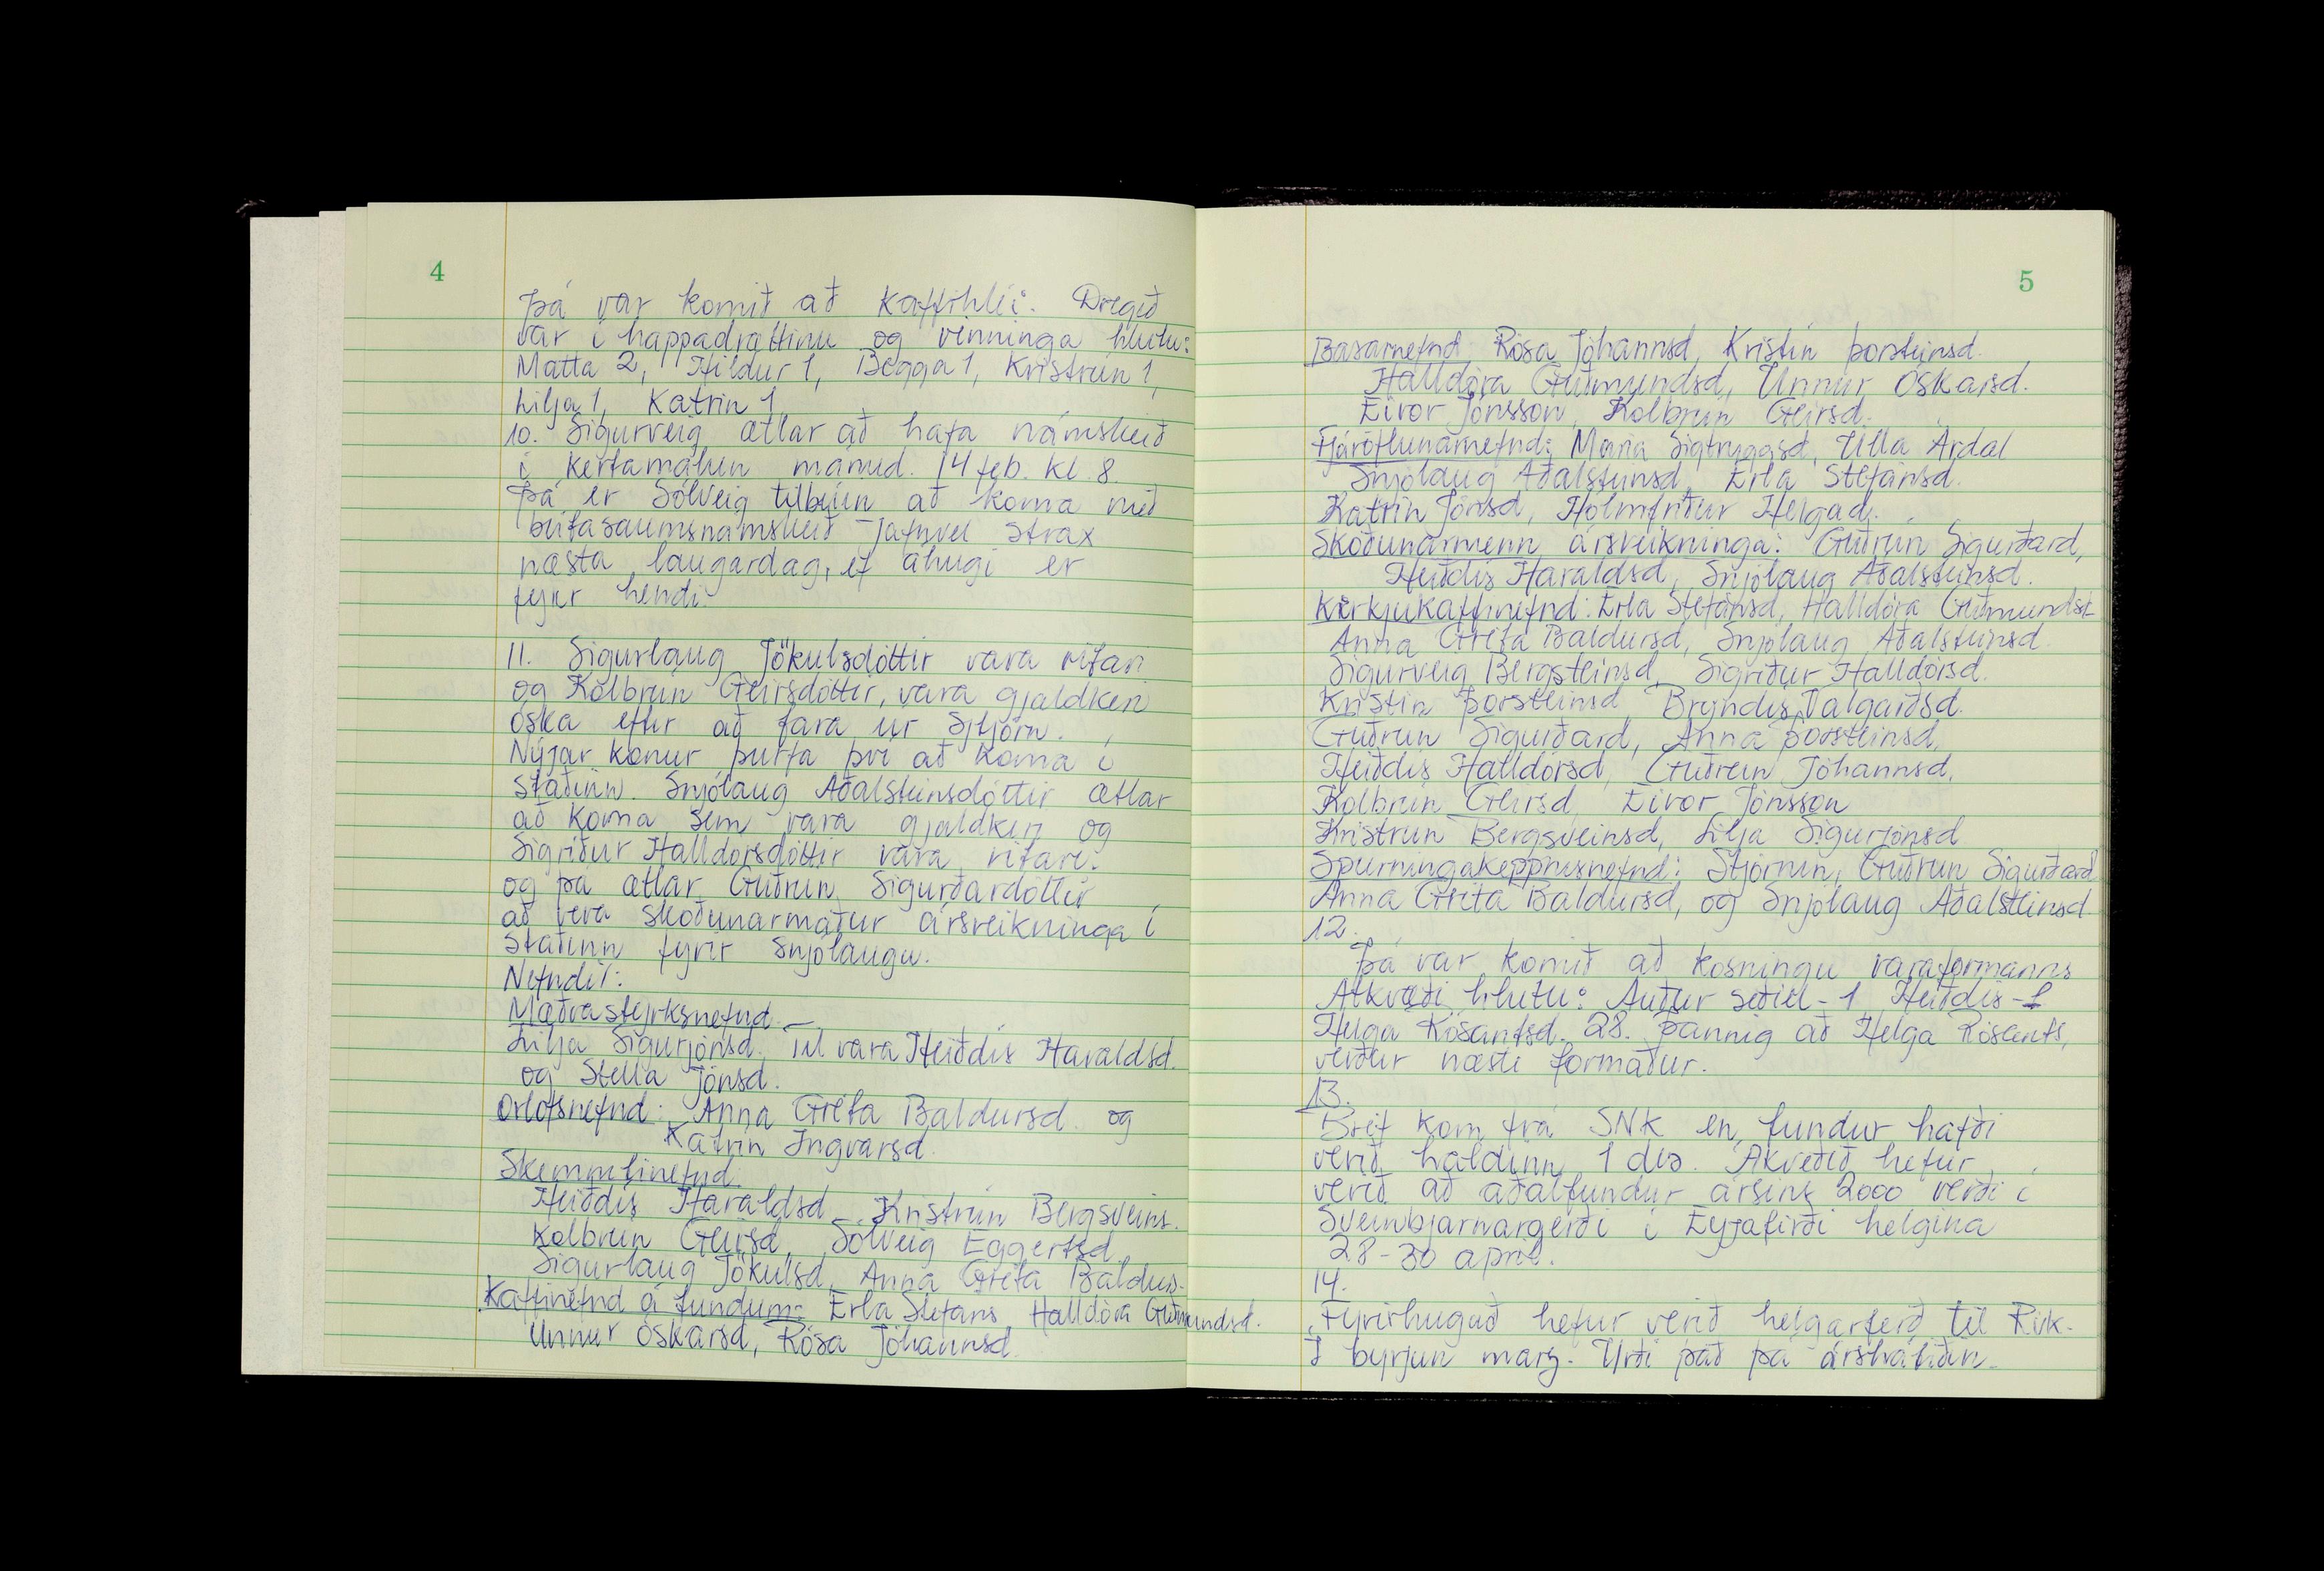 4
Þá var komið að kaffihléi. Dregið
var í happadrættinu og vinninga hlutu:
Matta 2, Hildur 1, Begga 1, Kristrún 1,
Lilja 1, Katrín 1
10. Sigurveig ætlar að hafa námskeið
í kertamálun mánud. 14 feb. kl. 8.
Þá er Sólveig tilbúin að koma með
bútasaumsnámskeið - jafnvel strax
næsta laugardag, ef áhugi er
fyrir hendi.
11. Sigurlaug Jökulsdóttir vara ritari
og Kolbrún Geirsdóttir, vara gjaldkeri
óska eftir að fara úr stjórn.
Nýjar konur þurfa því að koma í
staðinn. Snjólaug Aðalsteinsdóttir ætlar
að koma sem vara gjaldkeri og
Sigríður Halldórsdóttir vara ritari.
og þá ætlar Guðrún Sigurðardóttir
að vera skoðunarmaður ársreikninga í
staðinn fyrir Snjólaugu.
Nefndir:
Mæðrastyrksnefnd -
Lilja Sigurjónsd. til vara Heiðdís Haraldsd.
og Stella Jónsd.
Orlofsnefnd: Anna Gréta Baldursd. og
Katrín Ingvarsd.
Skemmtinefnd.
Heiðdís Haraldsd. Kristrún Bergsveins.
Kolbrún Geirsd, Sólveig Eggertsd.
Sigurlaug Jökulsd, Anna Gréta Baldurs.
Kaffinefnd á fundum: Erla Stefáns, Halldóra Guðmundsd.
Unnur Óskarsd, Rósa Jóhannsd.
5
Basarnefnd Rósa Jóhannsd, Kristín Þorsteinsd.
Halldóra Guðmundsd, Unnur Óskarsd.
Eivor Jónsson, Kolbrún Geirsd.
Fjáröflunarnefnd: María Sigtryggsd, Ulla Árdal
Snjólaug Aðalsteinsd, Erla Stefánsd.
Katrín Jónsd, Hólmfríður Helgad.
Skoðunarmenn ársreikninga: Guðrún Sigurðard,
Heiðdís Haraldsd, Snjólaug Aðalsteinsd.
Kirkjukaffinefnd: Erla Stefánsd, Halldóra Guðmundsd
Anna Gréta Baldursd, Snjólaug Aðalsteinsd.
Sigurveig Bergsteinsd, Sigríður Halldórsd.
Kristín Þorsteinsd Bryndís Valgarðsd.
Guðrún Sigurðard, Anna Þorsteinsd,
Heiðdís Halldórsd, Guðrún Jóhannsd,
Kolbrún Geirsd, Eivor Jónsson
Kristrún Bergsveinsd, Lilja Sigurjónsd
Spurningakeppnisnefnd: Stjórnin, Guðrún Sigurðard
Anna Gréta Baldursd, og Snjólaug Aðalsteinsd.
12.
Þá var komið að kosningu varaformanns
Atkvæði hlutu: Auður seðill - 1 Heiðdís - 1
Helga Rósantsd. 28. Þannig að Helga Rósants,
verður næsti formaður.
13.
Bréf kom frá SNK en fundur hafði
verið haldinn 1 des. Ákveðið hefur
verið að aðalfundur ársins 2000 verði í
Sveinbjarnargerði í Eyjafirði helgina
28-30 apríl.
14.
Fyrirhuguð hefur verið helgarferð til Rvk.
Í byrjun mars. Yrði það þá árshátíðin